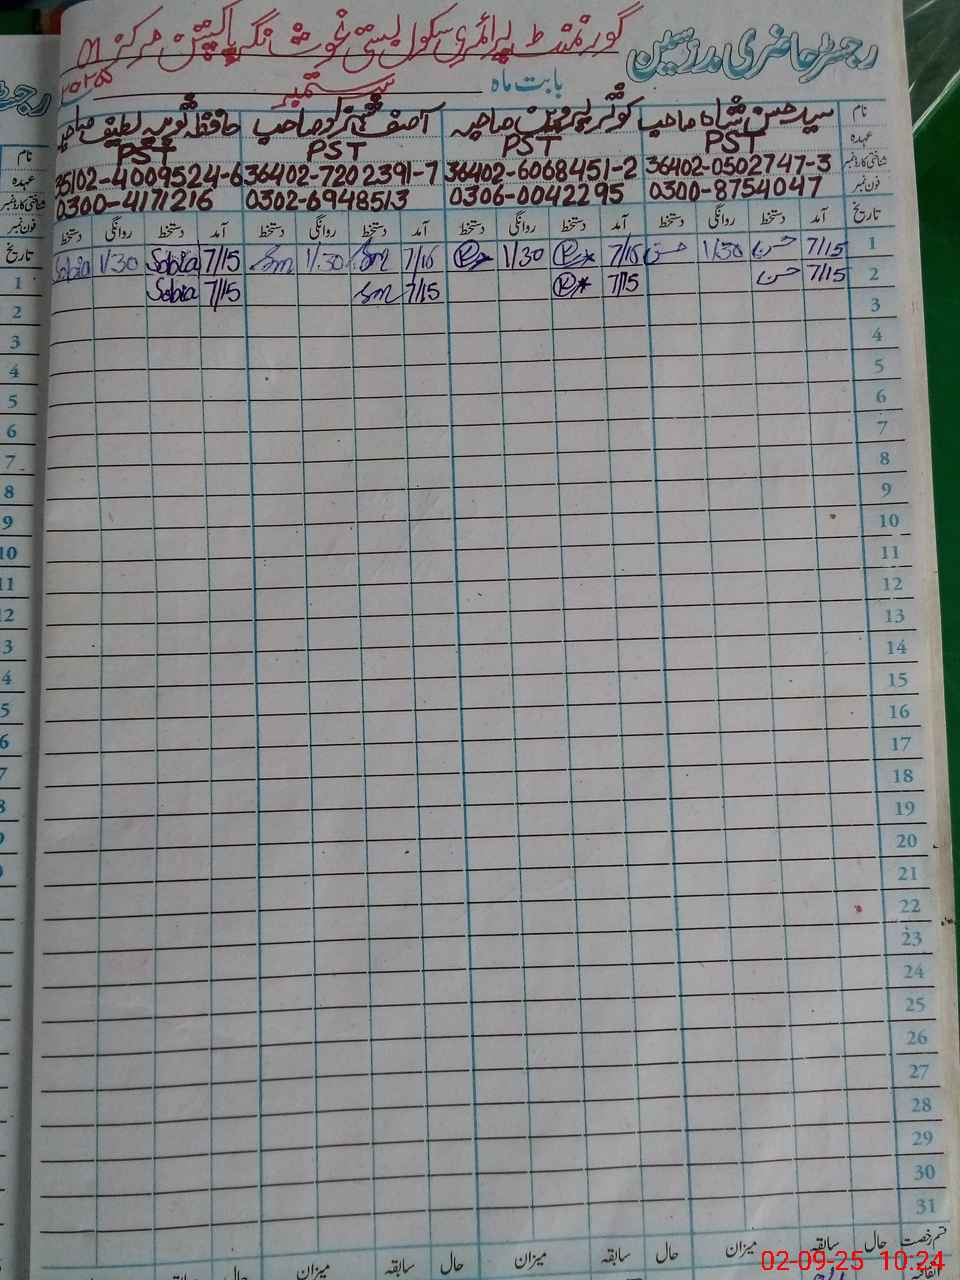 رجسٹر حاضری مدرسین گورنمنٹ پرائمری سکول بستی غوث نگر پاکپتن مرکز M
بابت ماہ ستمبر ۲۰۲۵
نام سید حسن شاہ صاحب کوثر پروین صاحبہ آصف صاحب حافظہ ثوبیہ لطیف صاحبہ
عہدہ PST PST PST PST
شناختی کارڈ نمبر 36402-0502747-3 36402-6068451-2 36402-7202391-7 35102-4009524-6
فون نمبر 0300-8754047 0306-0042295 0302-6948513 0300-4171216
تاریخ آمد دستخط روانگی دستخط آمد دستخط روانگی دستخط آمد دستخط روانگی دستخط آمد دستخط روانگی دستخط
1 7/15 حسن 1/30 حسن 7/16 1/30 7/16 Sm 1/30 Sm 7/15 Sobia 1/30 Sobia
2 7/15 حسن 7/15 7/15 Sm 7/15 Sobia
3
4
5
6
7
8
9
10
11
12
13
14
15
16
17
18
19
20
21
22
23
24
25
26
27
28
29
30
31
قسم رخصت حال سابقہ میزان حال سابقہ میزان حال سابقہ میزان حال سابقہ
اتفاقیہ
02-09-25 10:24
رجسٹر
نام
عہدہ
شناختی کارڈ نمبر
فون نمبر
تاریخ
1
2
3
4
5
6
7
8
9
10
11
12
3
4
5
6
7
8
9
0